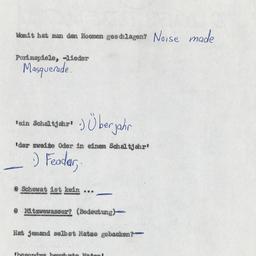 Womit hat man den Hooman geschlagen? Noise made
Purimspiele, -lieder
Masquerade.
'ein Schaltjahr' :) Überjahr
'der zweite Oder in einem Schaltjahr'
— :) Feadar,
@ Schewat ist kein ...
@ Mitzwewasser? (Bedeutung)—
Hat jemand selbst Matse gebacken?—